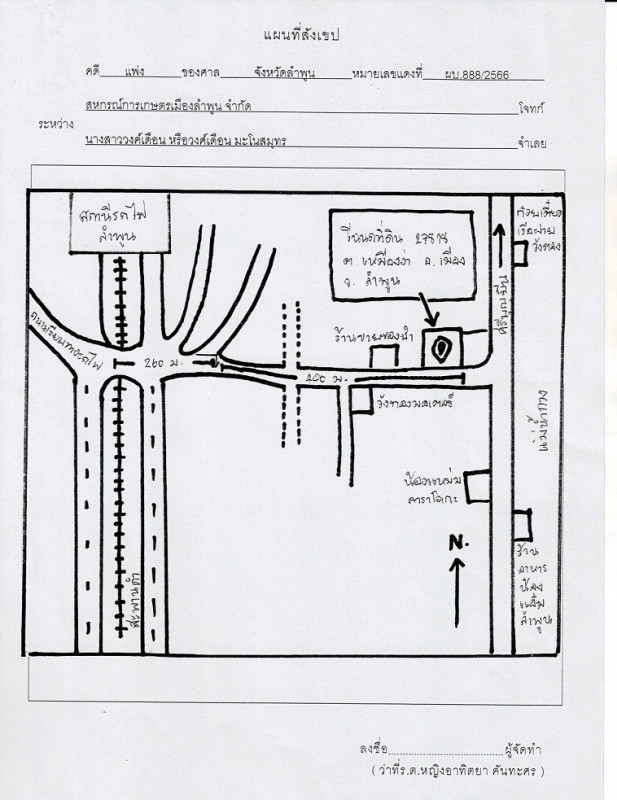 แผนที่สังเขป
คดี แพ่ง ของศาล จังหวัดลำพูน หมายเลขแดงที่ ผบ.888/2566
สหกรณ์การเกษตรเมืองลำพูน จำกัด โจทก์
ระหว่าง
นางสาววงค์เดือน หรือวงศ์เดือน มะโนสมุทร จำเลย
สถานีรถไฟ
ลำพูน
ที่ดิน
ต. เหมืองง่า อ. เมือง
จ. ลำพูน
ก๋วยเตี๋ยว
เรือ
วังทอง
ถนนเรียบทางรถไฟ
260 ม.
400 ม.
ร้านขายของชำ
วังทองมอเตอร์
แม่น้ำกวง
น้อง
คาราโอเกะ
N.
สะพานดำ
ร้าน
อาหาร
น้อง
ลำพูน
ลงชื่อ ผู้จัดทำ
( ว่าที่ร.ต.หญิงอาทิตยา คันทะศร )